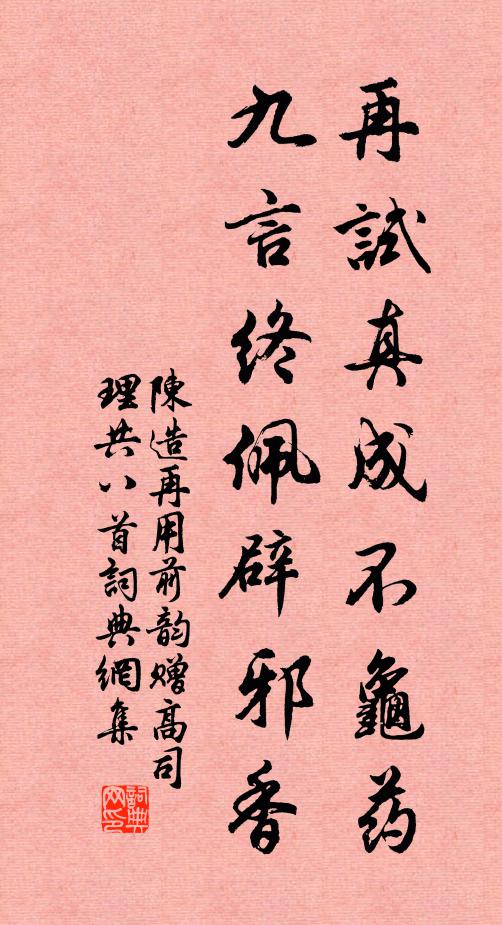 再試真成不龜药
九言終佩辟邪香
陳造再用前韵赠高司
理共八首詞典網集
詞典
网印